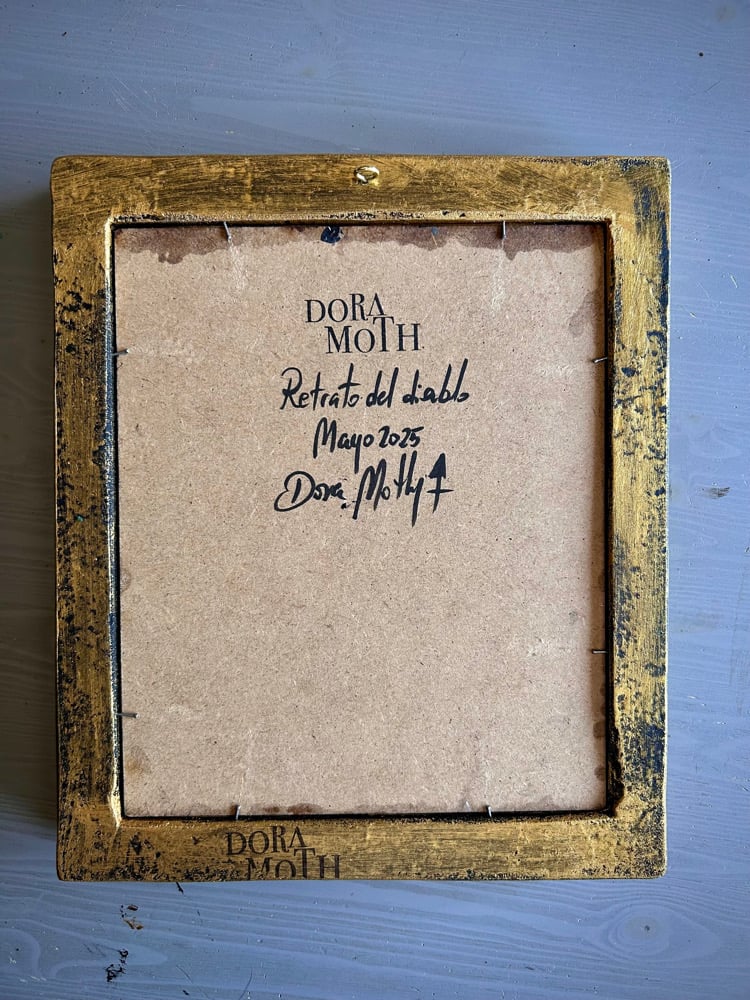 DORA
MOTH
Retrato del diablo
Mayo 2025
Dora Moth
DORA
MOTH